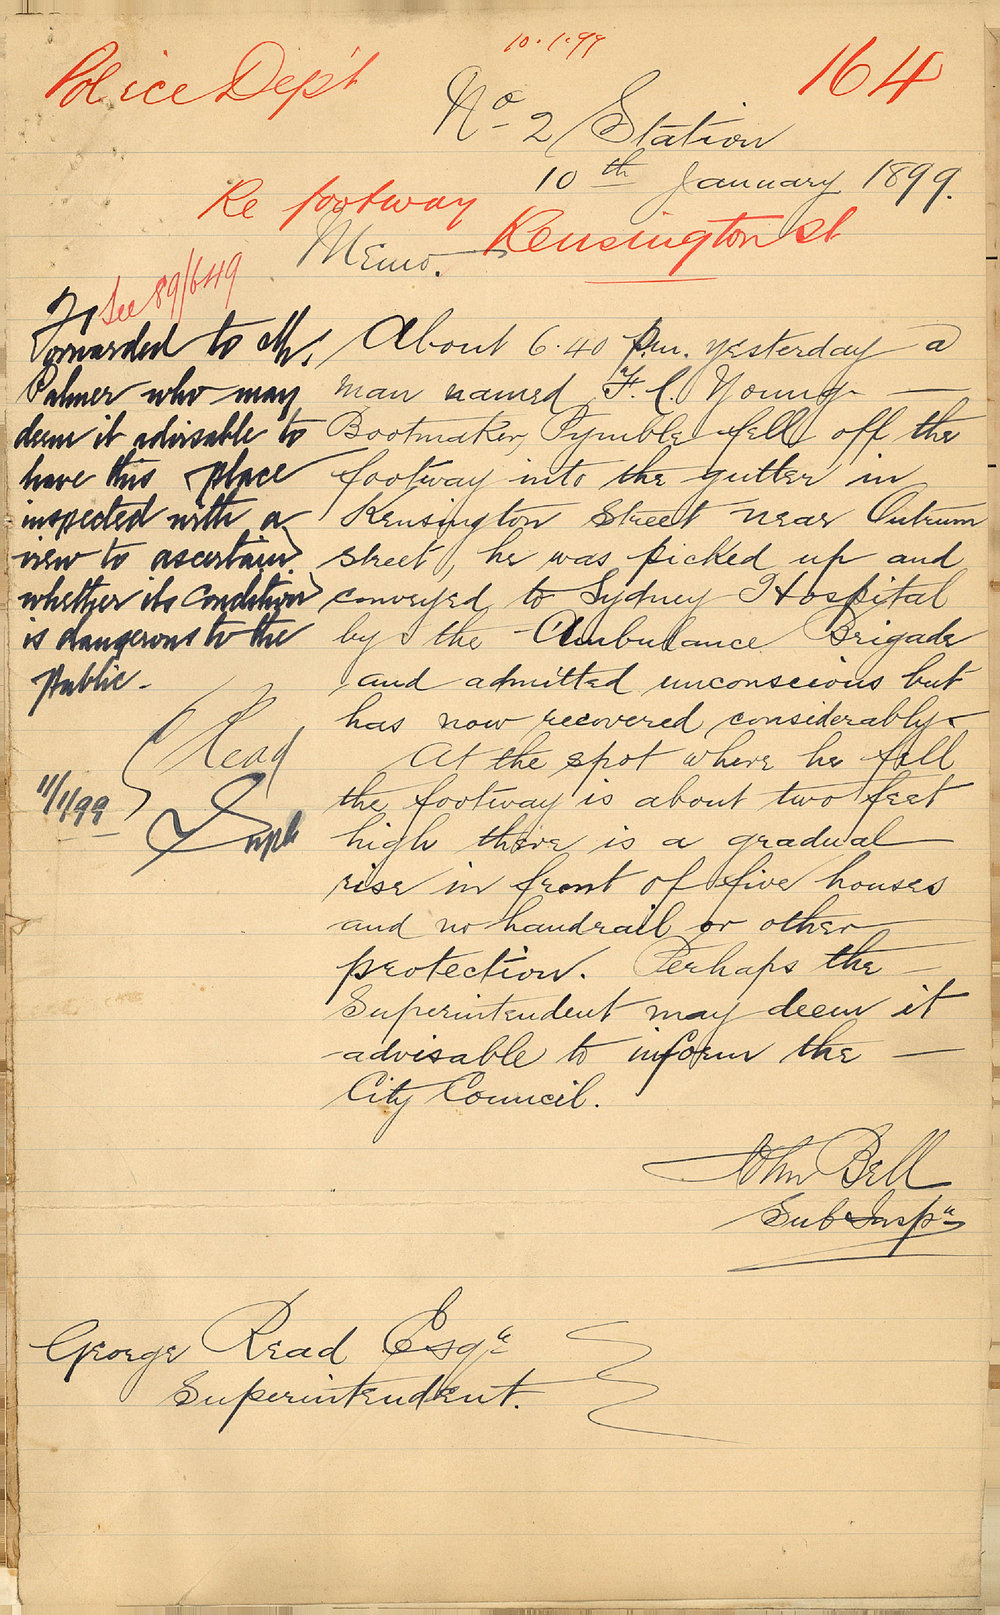 10.1.99
Police Dep't
164
No 2 Station
10th January 1899.
Re footway
Kensington st
Memo.
See 89/649
Forwarded to Mr.
Palmer who may
deem it advisable to
have this place
inspected with a
view to ascertain
whether its condition
is dangerous to the
public.
G Read
Supt
11/1/99
About 6.40 p.m. yesterday a
man named F. C. Young
Bootmaker, Pymble fell off the
footway into the gutter in
Kensington Street near Outrum
street, he was picked up and
conveyed to Sydney Hospital
by the Ambulance Brigade
and admitted unconscious but
has now recovered considerably.
At the spot where he fell
the footway is about two feet
high there is a gradual
rise in front of five houses
and no handrail or other
protection. Perhaps the
Superintendent may deem it
advisable to inform the
City Council.
John Bell
Sub Inspr
George Read Esqr
Superintendent.